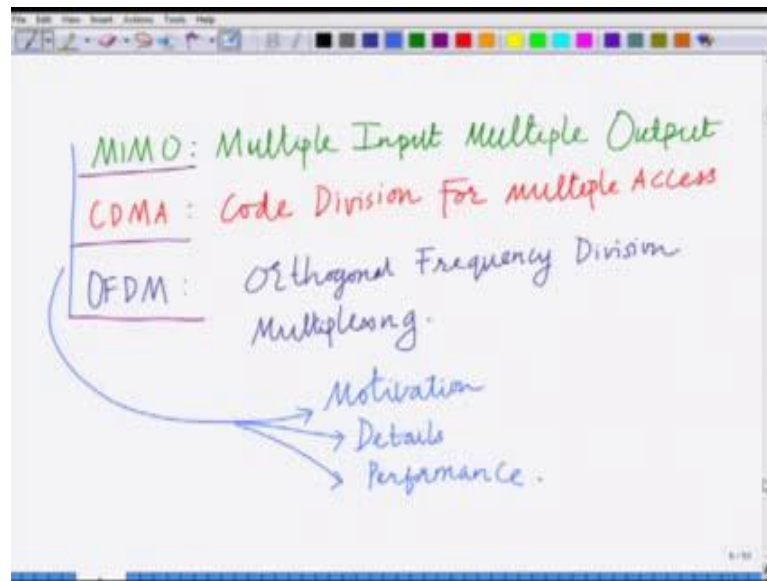 File Edit View Insert Actions Tools Help
MIMO: Multiple Input Multiple Output
CDMA: Code Division For Multiple Access
OFDM: Orthogonal Frequency Division
Multiplexing.
Motivation
Details
Performance.